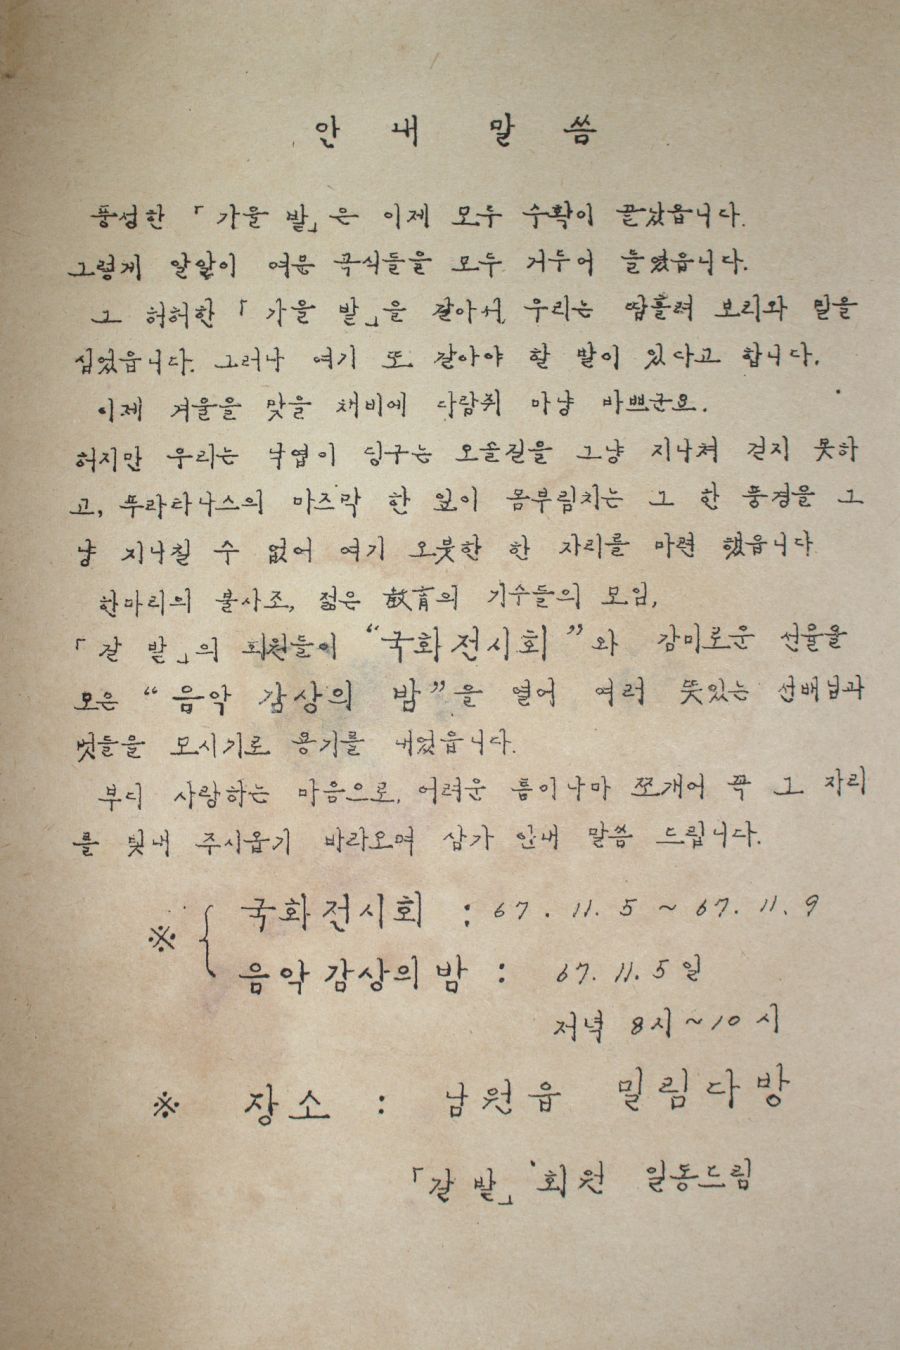 안 내 말 씀
풍성한 「가을 밭」은 이제 모두 수확이 끝났읍니다.
그렇게 알알이 여문 곡식들을 모두 거두어 들였읍니다.
그 허허한 「가을 밭」을 갈아서 우리는 땀흘려 보리와 밀을
심었읍니다. 그러나 여기 또 갈아야 할 밭이 있다고 합니다.
이제 겨울을 맞을 채비에 다람쥐 마냥 바쁘군요.
허지만 우리는 낙엽이 딩구는 오솔길을 그냥 지나쳐 걷지 못하
고, 뿌라타나스의 마즈막 한 잎이 몸부림치는 그 한 풍경을 그
냥 지나칠 수 없어 여기 오붓한 한 자리를 마련 했읍니다
한마리의 불사조, 젊은 敎育의 기수들의 모임,
「갈 밭」의 회원들이 “국화전시회”와 감미로운 선율을
모은 “음악 감상의 밤”을 열어 여러 뜻있는 선배님과
벗들을 모시기로 용기를 내었읍니다.
부디 사랑하는 마음으로, 어려운 틈이나마 쪼개어 꼭 그 자리
를 빛내 주시옵기 바라오며 삼가 안내 말씀 드립니다.
※ { 국화전시회 : 67. 11. 5 ~ 67. 11. 9
음악감상의밤 : 67. 11. 5일
저녁 8시~10시
※ 장소 : 남원읍 밀림다방
「갈 밭」 회원 일동드림